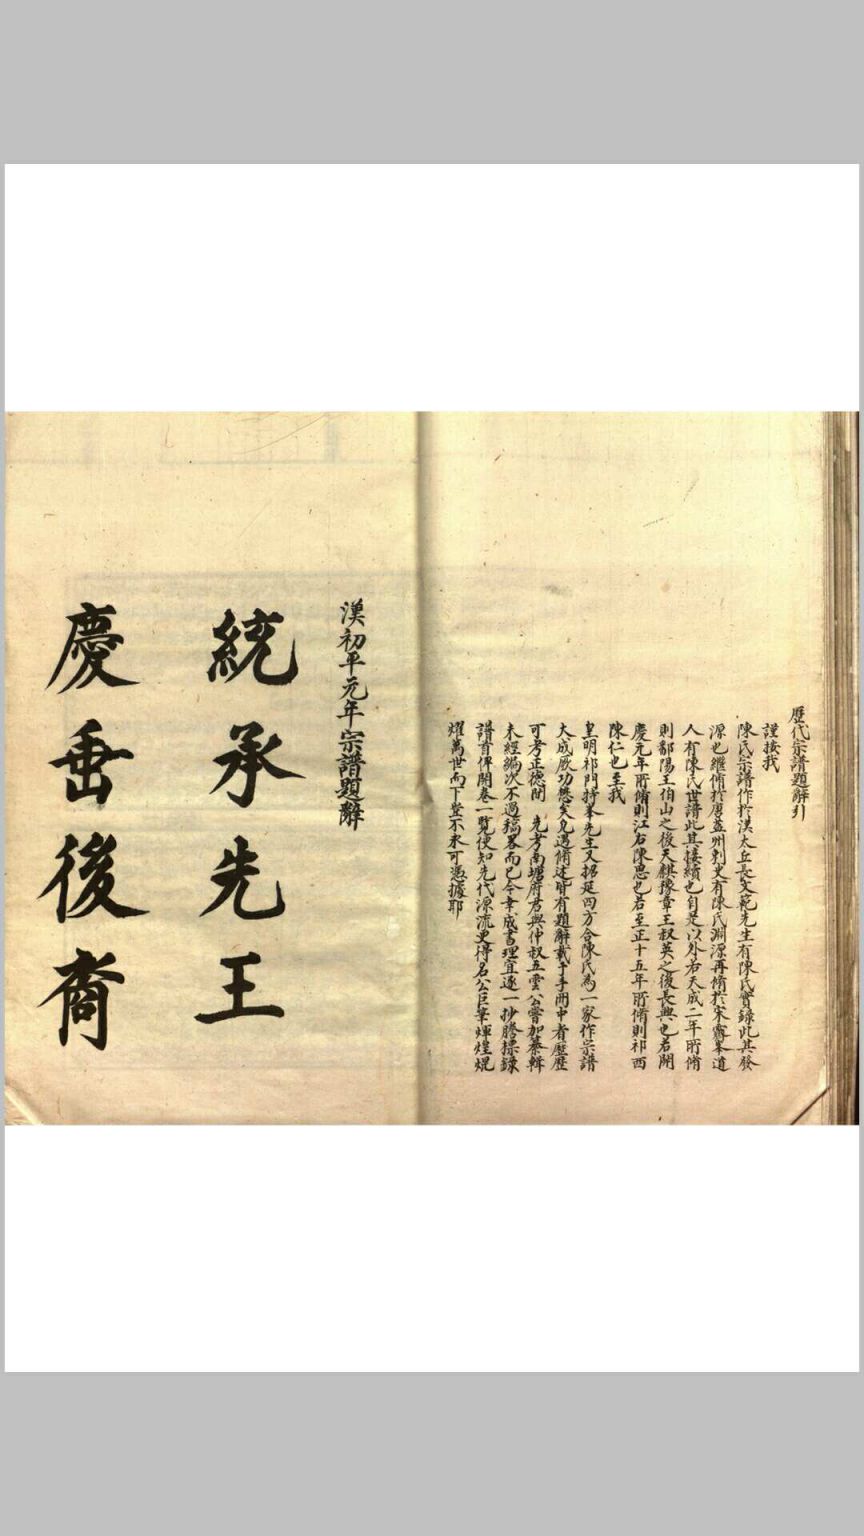 歷代宗譜題辭引
謹按我
陳氏宗譜作於漢太丘長文範先生有陳氏實錄此其發
源也繼脩於唐益州刺史有陳氏淵源再脩於宋靈峯道
人有陳氏世譜此其接續也自是以外若天成二年所脩
則鄱陽王伯山之後天麒豫章王叔英之後長興也若開
慶元年所脩則江右陳思也若至正十五年所脩則祁西
陳仁也至我
皇明祁門持峯先生又招延四方合陳氏為一家作宗譜
大成厥功懋矣凡遇脩述皆有題辭載于手冊中者歷歷
可考正德間 先考南塘府君與仲叔五雲公嘗加纂輯
未經編次不過稿畧而已今幸成書理宜逐一抄謄標錄
譜首俾開卷一覽便知先代源流更得名公巨筆煇煌焜
燿萬世而下豈不永可憑據耶
漢初平元年宗譜題辭
統承先王
慶垂後裔